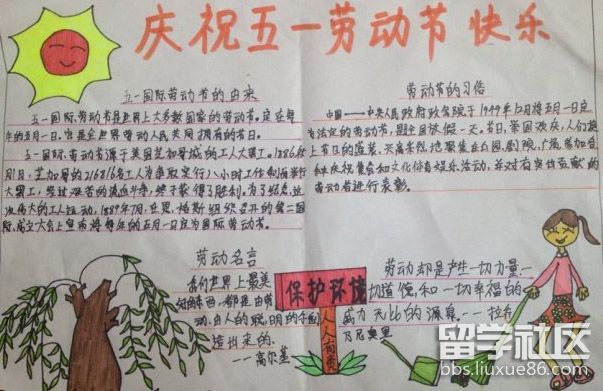 庆祝五一劳动节快乐
五一国际劳动节的由来
五一国际劳动节是世界上大多数国家的劳动节。定在每
年的五月一日。它是全世界劳动人民共同拥有的节日。
五一国际劳动节源于美国芝加哥城的工人大罢工。1886年
5月1日,芝加哥的216816名工人为争取实行八小时工作制而举行
大罢工,经过艰苦的流血斗争,终于获得了胜利。为了纪念这
次伟大的工人运动,1889年7月,在恩格斯组织召开的第二国
际成立大会上宣布将每年的五月一日定为国际劳动节。
劳动节的习俗
中国——中央人民政府政务院于1949年12月将五月一日定
为法定的劳动节,是全国放假一天。节日,举国欢庆,人们换
上节日的盛装,兴高采烈地聚集在公园,剧院,广场,参加各
种庆祝集会和文化体育娱乐活动,并对有突出贡献的
劳动者进行表彰。
劳动名言
我们世界上最美
好的东西,都是由劳
动、由人的聪明的手创
造出来的。
——高尔基
保护环境
人人有责
劳动却是产生一切力量、一
切道德和一切幸福的
威力无比的源泉。——拉·
乔乃奥里
留学社区
bbs.liuxue86.com